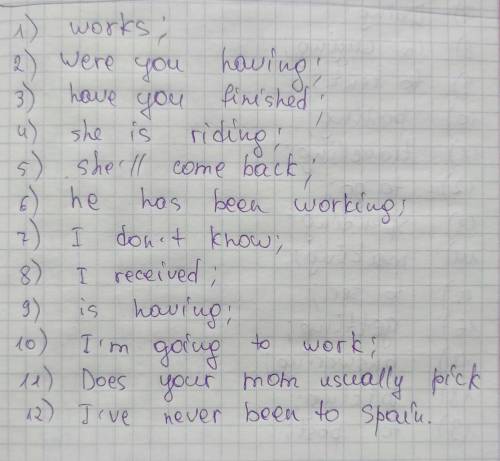 1) works;
2) were you having;
3) have you finished;
4) she is riding;
5) she'll come back;
6) he has been working;
7) I don't know;
8) I received;
9) is having;
10) I'm going to work;
11) Does your mom usually pick
12) I've never been to Spain.